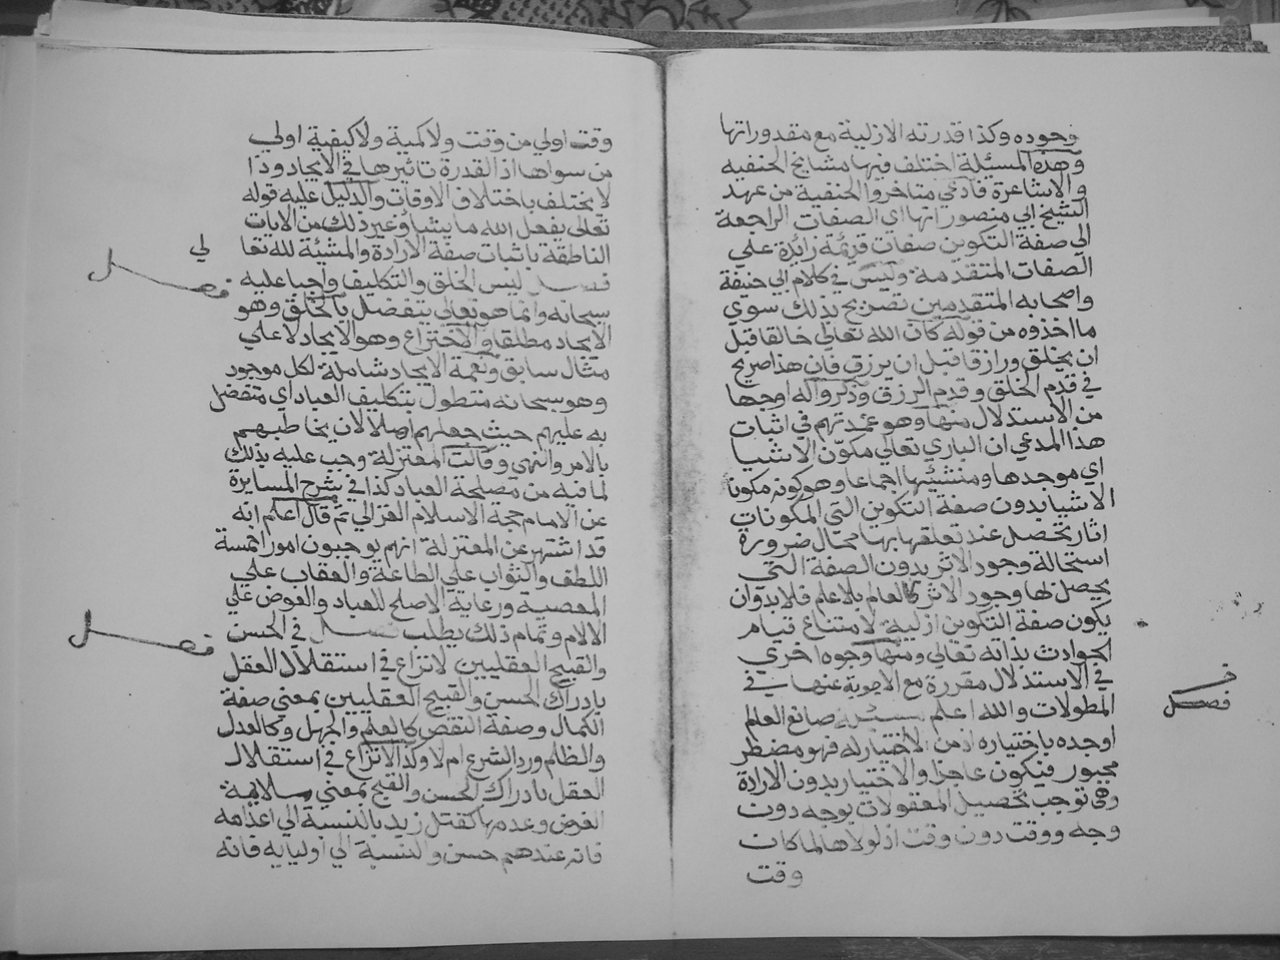 وجوده وكذا قدرته الازلية مع مقدوراتها
وهذه المسئلة اختلف فيها مشايخ الحنفيه
والاشاعرة فادعي متاخروا الحنفية من عهد
الشيخ ابي منصور انها اي الصفات الراجعة
الي صفة التكوين صفات قديمة زائدة علي
الصفات المتقدمة وليس في كلام ابي حنيفة
واصحابه المتقدمين تصريح بذلك سوي
ما اخذوه من قوله كان الله تعالي خالقا قبل
ان يخلق ورازقا قبل ان يرزق فان هذا صريح
في قدم الخلق وقدم الرزق وذكروا له اوجها
من الاستدلال منها وهو عمدتهم في اثبات
هذا المدعي ان الباري تعالي مكون الاشيا
اي موجدها ومنشئها اجماعا وهو كونه مكونا
الاشيا بدون صفة التكوين التي المكونات
اثار تحصل عند تعلقها بها محال ضرورة
استحالة وجود الاثر بدون الصفة التي
يحصل بها وجود الاثر كالعالم بلا علم فلا بد وان
يكون صفة التكوين ازلية لامتناع قيام
الحوادث بذاته تعالي ومنها وجوه اخري
في الاستدلال مقررة مع الاجوبة عنها في
المطولات والله اعلم صانع العالم
اوجده باختياره اذ من لا اختيار له فهو مضطر
مجبور فيكون عاجزا والاختيار بدون الارادة
وهي توجب تحصيل المعقولات بوجه دون
وجه ووقت دون وقت اذ لولاها لما كان
وقت
فصل
وقت اولي من وقت ولا كمية ولا كيفية اولي
من سواها اذ القدرة تاثيرها في الايجاد وذا
لا يختلف باختلاف الاوقات والدليل عليه قوله
تعالي يفعل الله ما يشاؤ وغير ذلك من الايات
الناطقة باثبات صفة الارادة والمشيئة لله تعا
لي
فصل ليس الخلق والتكليف واجبا عليه
فصل
سبحانه وانما هو تعالي يتفضل بالخلق وهو
الايجاد مطلقا والاختراع وهو الايجاد لا علي
مثال سابق ونعمة الايجاد شاملة لكل موجود
وهو سبحانه متطول بتكليف العباد اي متفضل
به عليهم حيث جعلهم اهلا لان يخاطبهم
بالامر والنهي وقالت المعتزلة وجب عليه بذلك
لما فيه من مصلحة العباد كذا في شرح المسايرة
عن الامام حجة الاسلام الغزالي ثم قال اعلم انه
قد اشتهر عن المعتزلة انهم يوجبون امورا خمسة
اللطف والثواب علي الطاعة والعقاب علي
المعصية ورعاية الاصلح للعباد والعوض علي
الالام وتمام ذلك يطلب فصل في الحسن
فصل
والقبيح العقليين لا نزاع في استقلال العقل
بادراك الحسن والقبيح العقليين بمعني صفة
الكمال وصفة النقص كالعلم والجهل وكالعدل
والظلم ورد الشرع ام لا وكذا لا نزاع في استقلال
العقل بادراك الحسن والقبح بمعني ملايمة
الغرض وعدمها كقتل زيد بالنسبة الي اعدائه
فانه عندهم حسن وبالنسبة الي اوليايه فانه